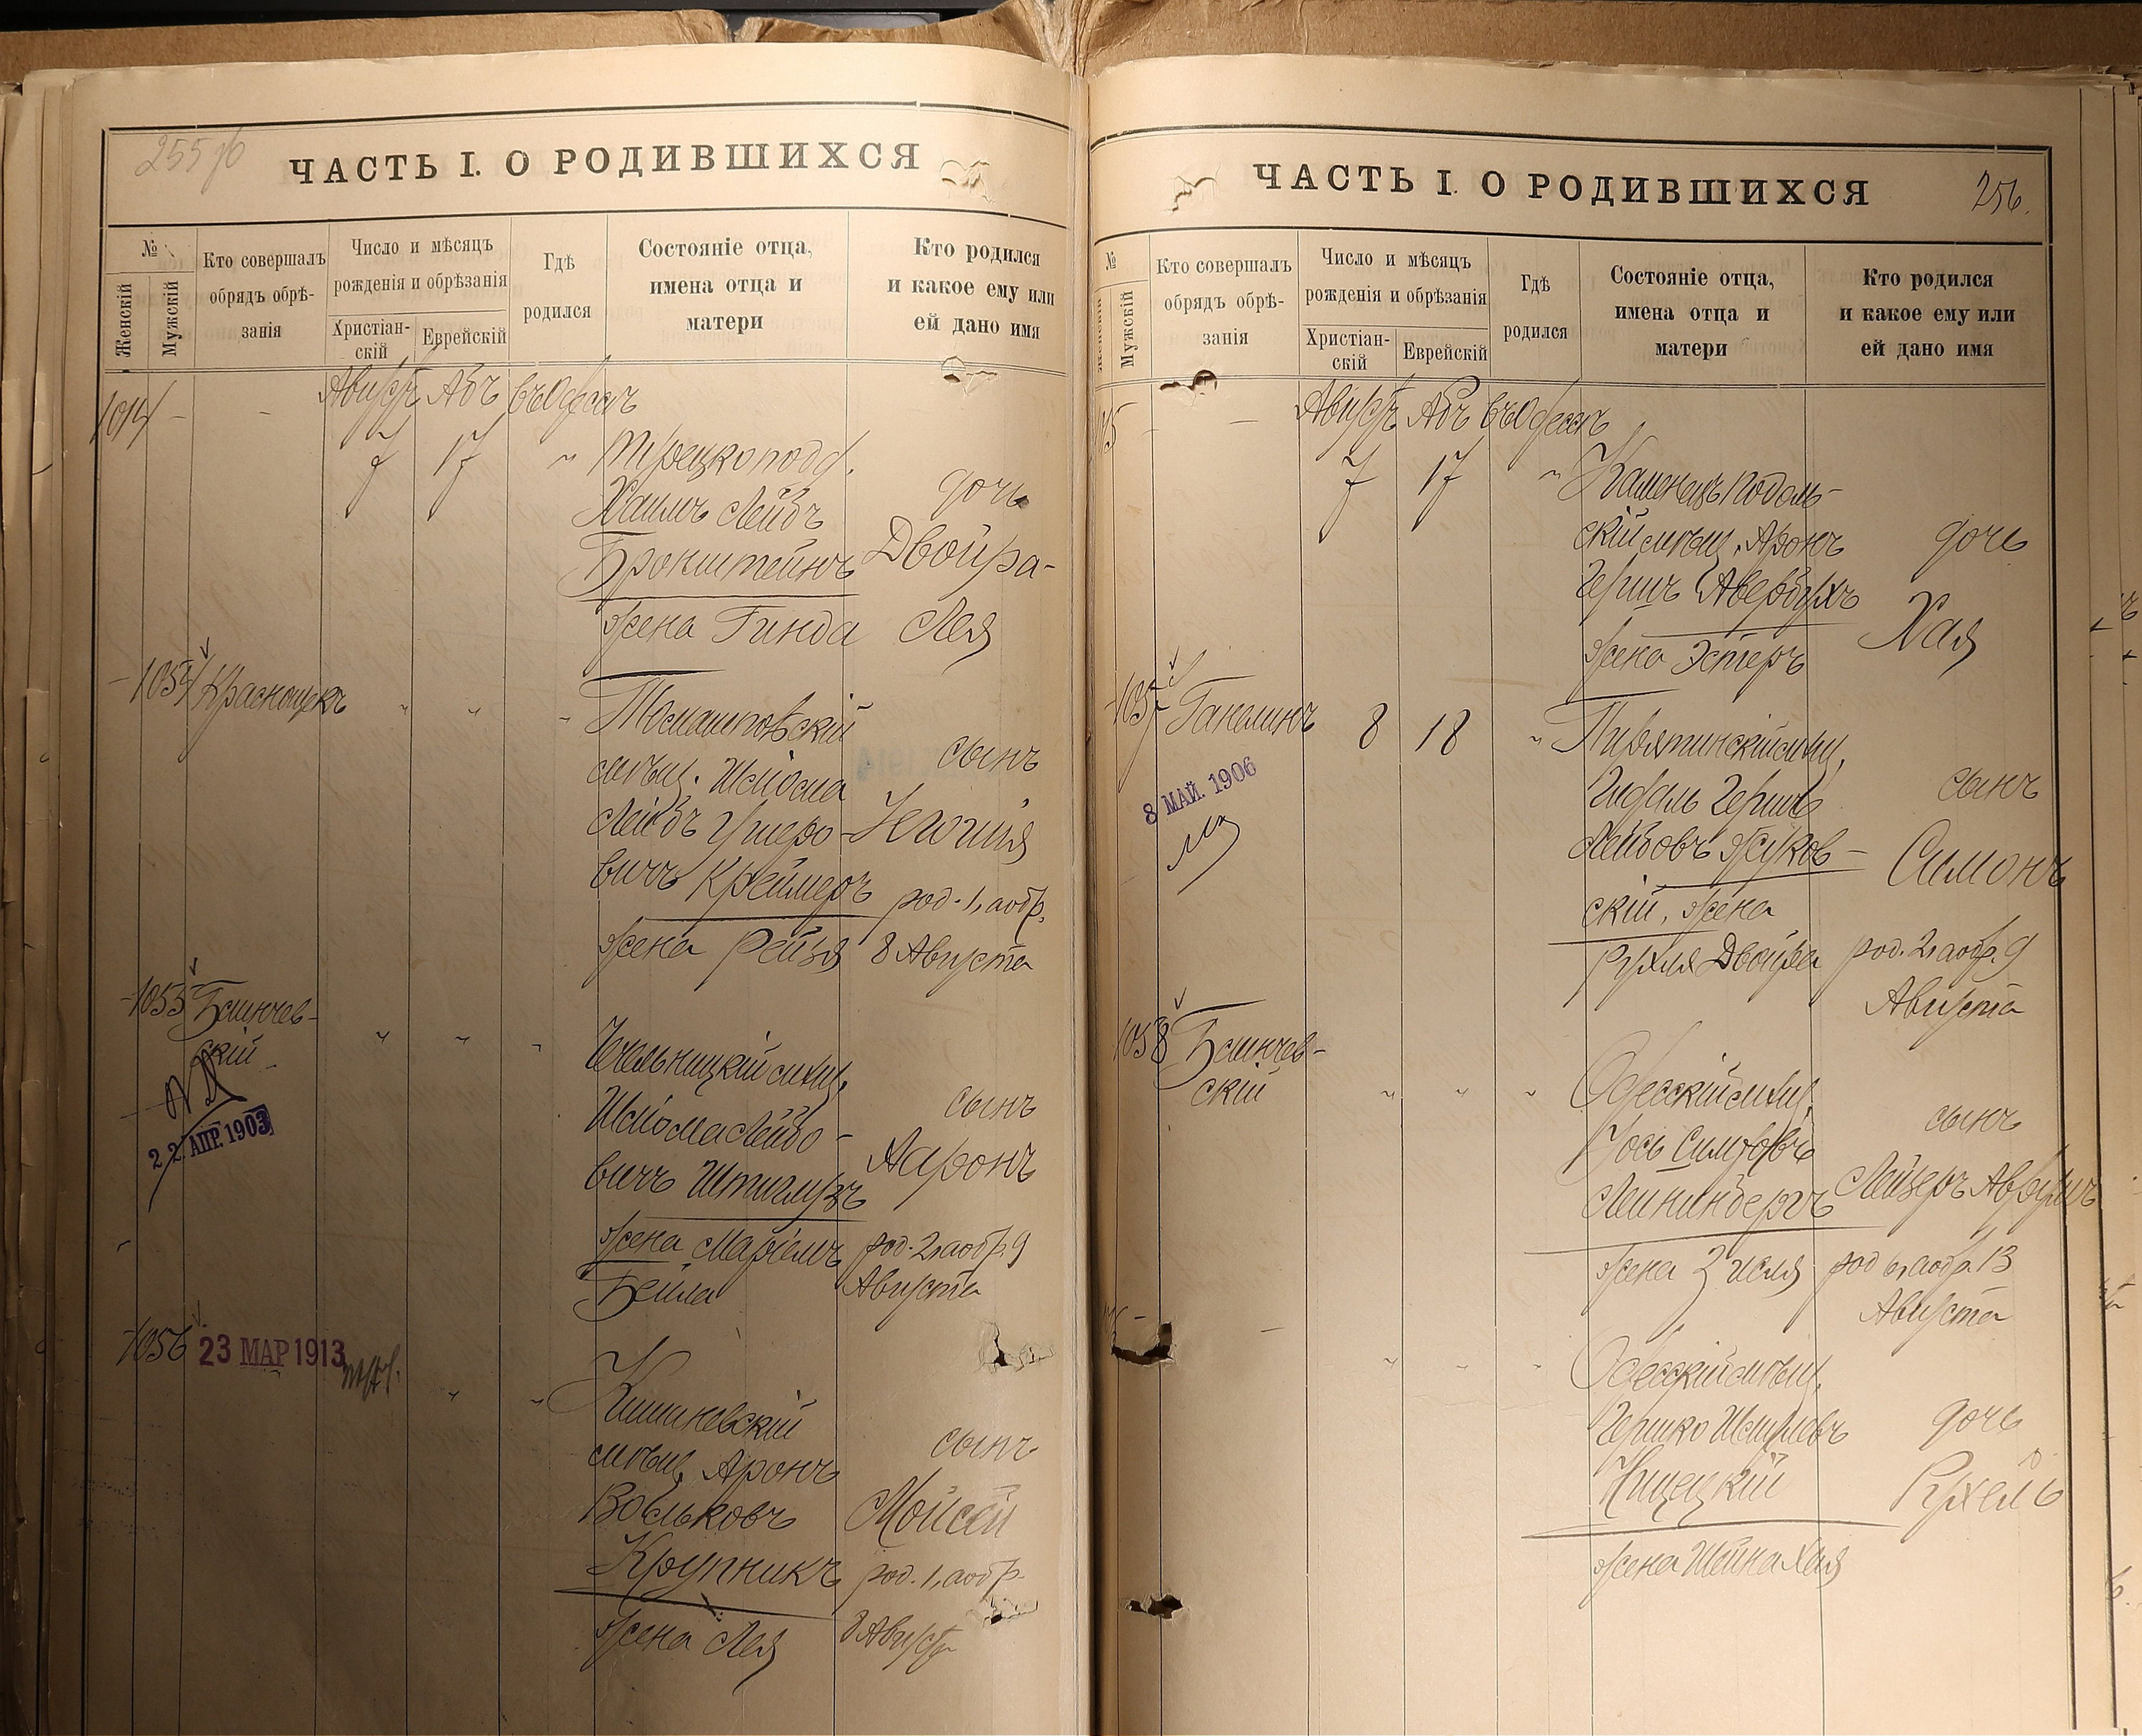 255 об
ЧАСТЬ I. О РОДИВШИХСЯ
№
Женскій
Мужскій
Кто совершалъ
обрядъ обрѣ-
занія
Число и мѣсяцъ
рожденія и обрѣзанія
Христіан-
скій
Еврейскій
Гдѣ
родился
Состояніе отца,
имена отца и
матери
Кто родился
и какое ему или
ей дано имя
1014 - - Августъ Абъ въ Одессѣ
7 17 " Турецко подд.
Хаимъ Лейбъ
дочь
Бронштейнъ
Двойра-
жена Гинда
Лея
1054 Краснощекъ " " "
Томашпольскій
мѣщ. Шлёма
сынъ
Лейбъ Ушеро-
вичъ Креймеръ
род. 1, а обр.
жена Рейзя
8 Августа
1055
скій
22 АПР. 1903
" " "
Чечельницкій мѣщ.
Шлёма Лейбо-
сынъ
вичъ
Ааронъ
жена Маріемъ
род. 2, а обр. 9
Бейла
Августа
1056 23 МАР 1913
" "
Кишиневскій
мѣщ. Аронъ
сынъ
Вольковъ
Мойсей
Крупникъ
род. 1, а обр.
жена Лея
8 Августа
ЧАСТЬ I. О РОДИВШИХСЯ
256.
№
Женскій
Мужскій
Кто совершалъ
обрядъ обрѣ-
занія
Число и мѣсяцъ
рожденія и обрѣзанія
Христіан-
скій
Еврейскій
Гдѣ
родился
Состояніе отца,
имена отца и
матери
Кто родился
и какое ему или
ей дано имя
15 - - Августъ Абъ въ Одессѣ
7 17 " Каменецъ Подоль-
скій мѣщ. Аронъ
дочь
Гершъ Авербухъ
Хая
жена Эстеръ
1057 Ганелинъ 8 18 "
Пирятинскій мѣщ.
8 МАЙ. 1906
Гидаль Гершъ
сынъ
Лейбовъ Жуков-
Симонъ
скій, жена
Рухля Двойра
род. 2, а обр. 9
Августа
1058
скій
" " "
Одесскій мѣщ.
Іось
сынъ
Лейзеръ Аврумъ
жена Зисля
род. 6, а обр. 13
Августа
- " " "
Одесскій мѣщ.
Гершко
дочь
Рухель
жена Шейна Хая